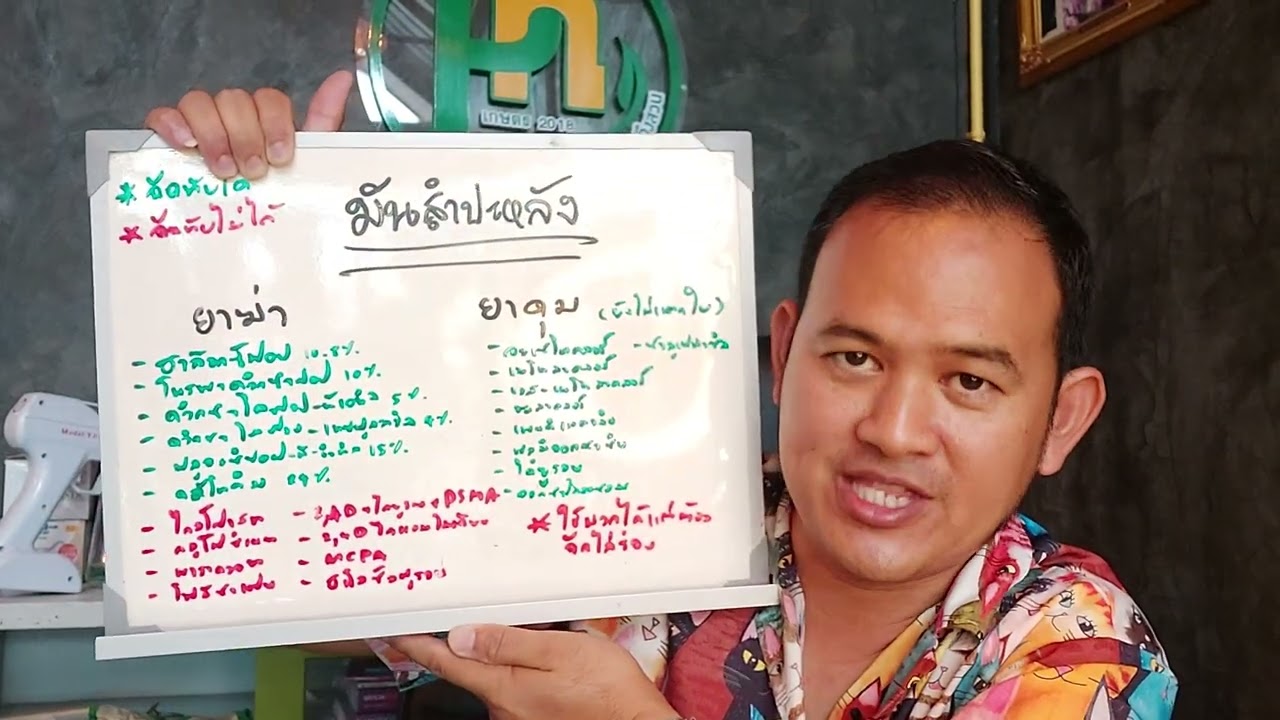 เกษตร 2018
* ฉีดทับได้
* ฉีดทับไม่ได้
มันสำปะหลัง
ยาฆ่า
- ฮาล๊อกซีฟอป 10.8%
- โพรพาควิซาฟอป 10%
- ควิซาโลฟอป-พี-เอทิล 5%
- ควิซาโลฟอป-พี-เทฟูริล 4%
- ฟลูอะซิฟอป-พี-บิวทิล 15%
- คลีโทดิม 24%
- ไกลโฟเซต
- กลูโฟซิเนต
- พาราควอต
- 2,4D ไดโซเดียม
- MCPA
ยาคุม (ยังไม่แตกใบ)
- อะเซโทคลอร์
- เมโทลาคลอร์
- เอส-เมโทลาคลอร์
- อะลาคลอร์
- เพนดิเมทาลิน
- ฟลูมิออกซาซิน
- ไดยูรอน
* ใช้พวกได้แต่ต้อง
ฉีดใส่ร่อง